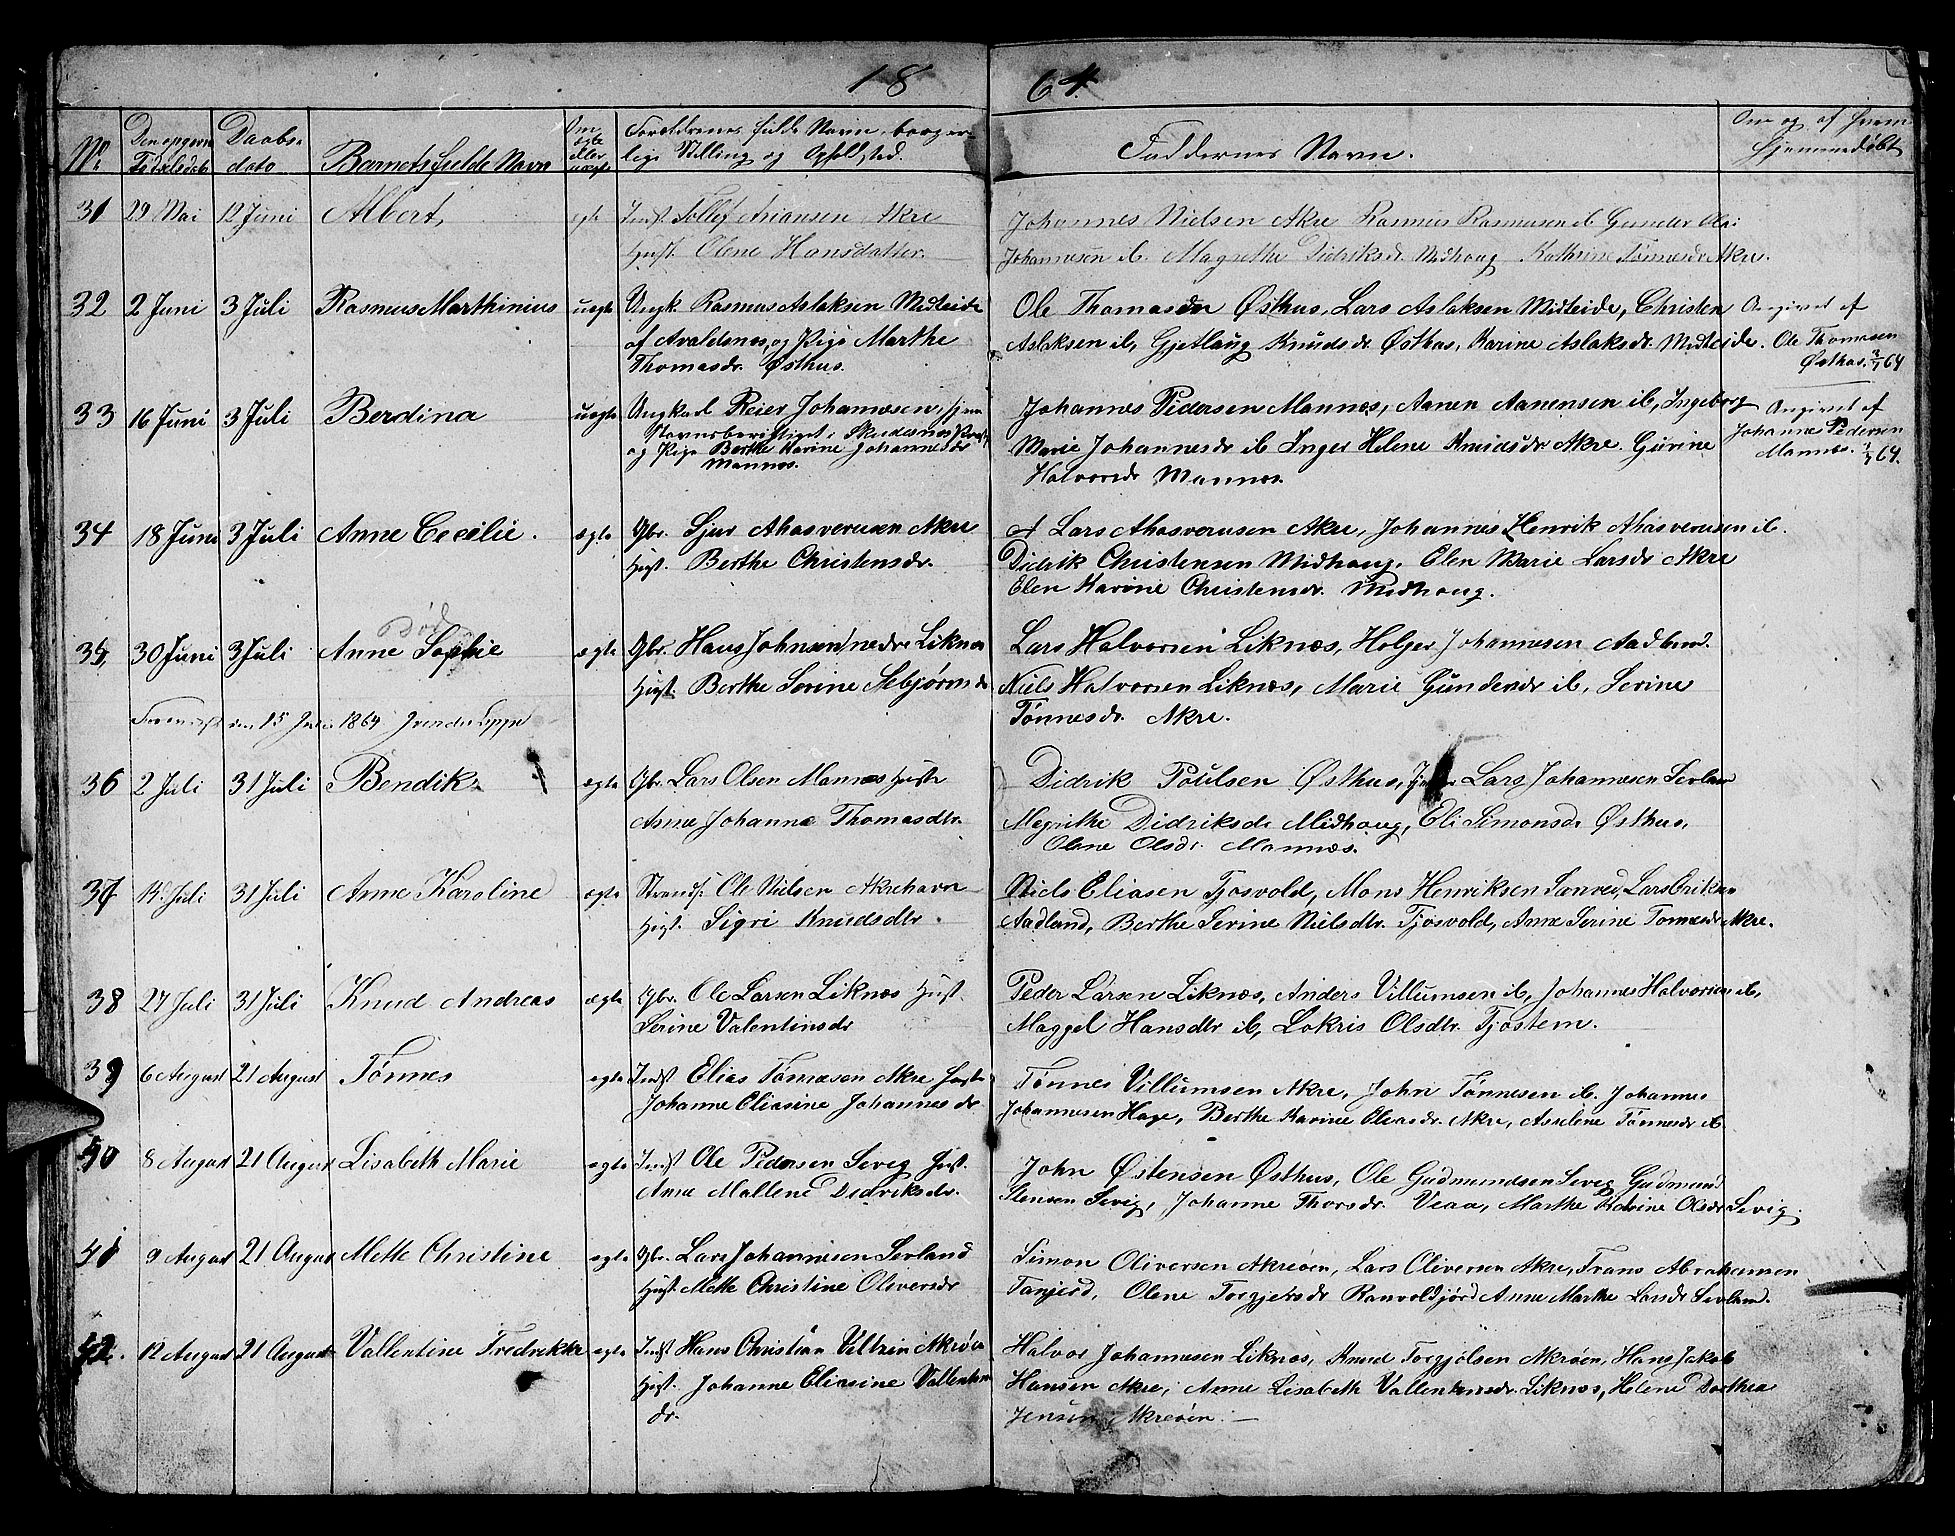 18 64.
No
Den opgivne Fødselsdato
Daabsdato
Barnets fulde Navn
Om ægte eller uægte
Forældrenes fulde Navn, borgerlige Stilling og Opholdsted.
Faddernes Navn.
Om og af hvem hjemmedøbt
31 29 Mai 12 Juni Albert, egte Indst. Tollef Ariansen Akre
Hust. Olene Hansdatter.
Johannes Nielsen Akre Rasmus Rasmusen ib Gunder
Johannesen ib. Magrethe Didriksdr. Midhoug Kathrine Tønnesdr Akre.
32 2 Juni 3 Juli Rasmus Marthinius uegte Ungk. Rasmus Aslaksen Midteide
af Avaldsnes, og Pige Marthe
Thomasdr. Østhus.
Ole Thomasen Østhus, Lars Aslaksen Midteide, Christen
Aslaksen ib, Gjetlaug Knudsdr. Østhus, Karine Aslaksdr. Midteide.
Angivet af
Ole Thomasen
Østhus. 2/7 64
33 16 Juni 3 Juli Berdina uegte Ungkarl Reier Johannesen,
Skudesnes
og Pige Berthe Karine Johannesdr
Mannes.
Johannes Pedersen Mannes, Aanen Aanensen ib, Ingeborg
Marie Johannesdr ib Inger Helene Knudsdr Akre. Gurine
Halvorsdr Mannes.
Angivet af
Johannes Pedersen
Mannes. 1/7 64.
34 18 Juni 3 Juli Anne Cecilie. ægte Gbr. Sjur Ahasverusen Akre
Hust. Berthe Christensdr.
Lars Ahasverusen Akre, Johannes Henrik Ahasverusen ib.
Didrik Christensen Midhoug, Elen Marie Larsdr Akre
Elen Karine Christensdr. Midhoug.
Død
35, 30 Juni 3 Juli Anne Sophie ægte Gbr. Hans Johnsen nedre Liknes
Hust. Berthe Serine Asbjørnsdr
den 15 1864
Lars Halvorsen Liknæs, Holger Johannesen Aadland.
Niels Halvorsen Liknæs, Marie Gundersdr ib, Serine
Tønnesdr. Akre.
36 2 Juli 31 Juli Bendik. ægte Gbr. Lars Olsen Mannes Hustr
Anne Johanne Thomasdtr.
Didrik Poulsen Østhus, Lars Johannesen Sevland
Megrethe Didriksdr Midhoug, Eli Simonsdr Østhus,
Olene Olsdr. Mannæs.
37 14 Juli 31 Juli Anne Karoline ægte Strands. Ole Nielsen Akrehavn
Hust. Sigri Knudsdtr.
Niels Eliasen Tjosvold, Mons Henriksen Lars Eriksen
Aadland, Berthe Serine Nielsdtr. Tjosvold, Anne Serine Tønnesdr Akre.
38 27 Juli 31 Juli Knud Andreas ægte Gbr. Ole Larsen Liknes Hust.
Serine Valentinsdr
Peder Larsen Liknæs, Anders Villumsen ib, Johannes Halvorsen ib,
Maggel Hansdtr ib, Lokris Olsdtr. Tjøstem.
39 6 August 21 August Tønnes egte Indst Elias Tønnesen Akre Hustr
Johanne Eliasine Johannesdr.
Tønnes Villumsen Akre, John Tønnesen ib. Johannes
Johannesen Hage, Berthe Karine Eliasdr. Akre, Asselene Tønnesdr ib.
40 8 August 21 August Lisabeth Marie egte Indst Ole Pedersen Sevig Hust.
Anne Mallene Didriksdr.
John Østensen Østhus, Ole Gudmundsen Sevig Gudmund
Stensen Sevig, Johanne Thorsdr. Veaa, Marthe Karine Olsdr Sevig.
41 9 August 21 August Mette Christine egte Gbr. Lars Johannesen Sevland
Hust. Mette Christine Oliversdr
Simon Oliversen Akreøen, Lars Oliversen Akre, Frans Abrahamsen
Olene Torgjersdr Ranvoldjord Anne Marthe Larsdr Sevland.
42. 12 August 21 August Vallentine Fredrikke egte Indst Hans Christian Akreøen
Hust. Johanne Eliasine Vallentins
dr.
Halvor Johannesen Liknes, Knud Torgjølsen Akreøen, Hans Jakob
Hansen Akre, Anne Lisabeth Vallentinsdr. Liknæs, Helene Dorthea
Jensen Akreøen. —